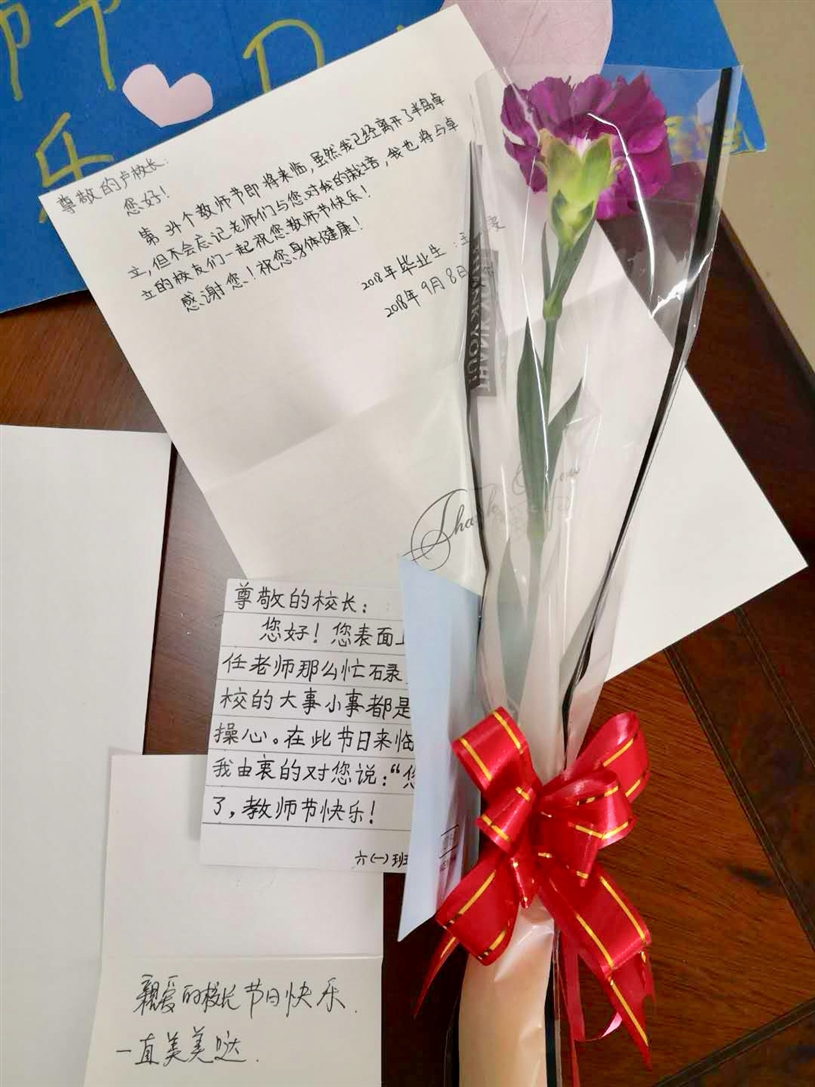 节
乐
D
尊敬的卢校长：
您好！
第34个教师节即将来临，虽然我已经离开了半岛卓
立，但不会忘记老师们与您对我的栽培，我也将与卓
立的校友们一起祝您教师节快乐！
感谢您！祝您身体健康！
2018年毕业生：王
2018年9月8日
THANK YOU!
Thank
尊敬的校长：
您好！您表面上
任老师那么忙碌
校的大事小事都是
操心。在此节日来临
我由衷的对您说：“您
了，教师节快乐！
六(一)班
親爱的校长节日快乐.
一直美美哒.